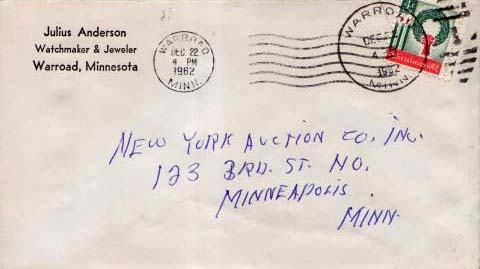 Julius Anderson
Watchmaker & Jeweler
Warroad, Minnesota
WARROAD
DEC 22
4 PM
1962
MINN.
WARROAD
DEC
4
1962
MINN.
4¢
Christmas 1962
NEW YORK AUCTION CO. INC.
123 3RD. ST. NO.
MINNEAPOLIS
MINN.